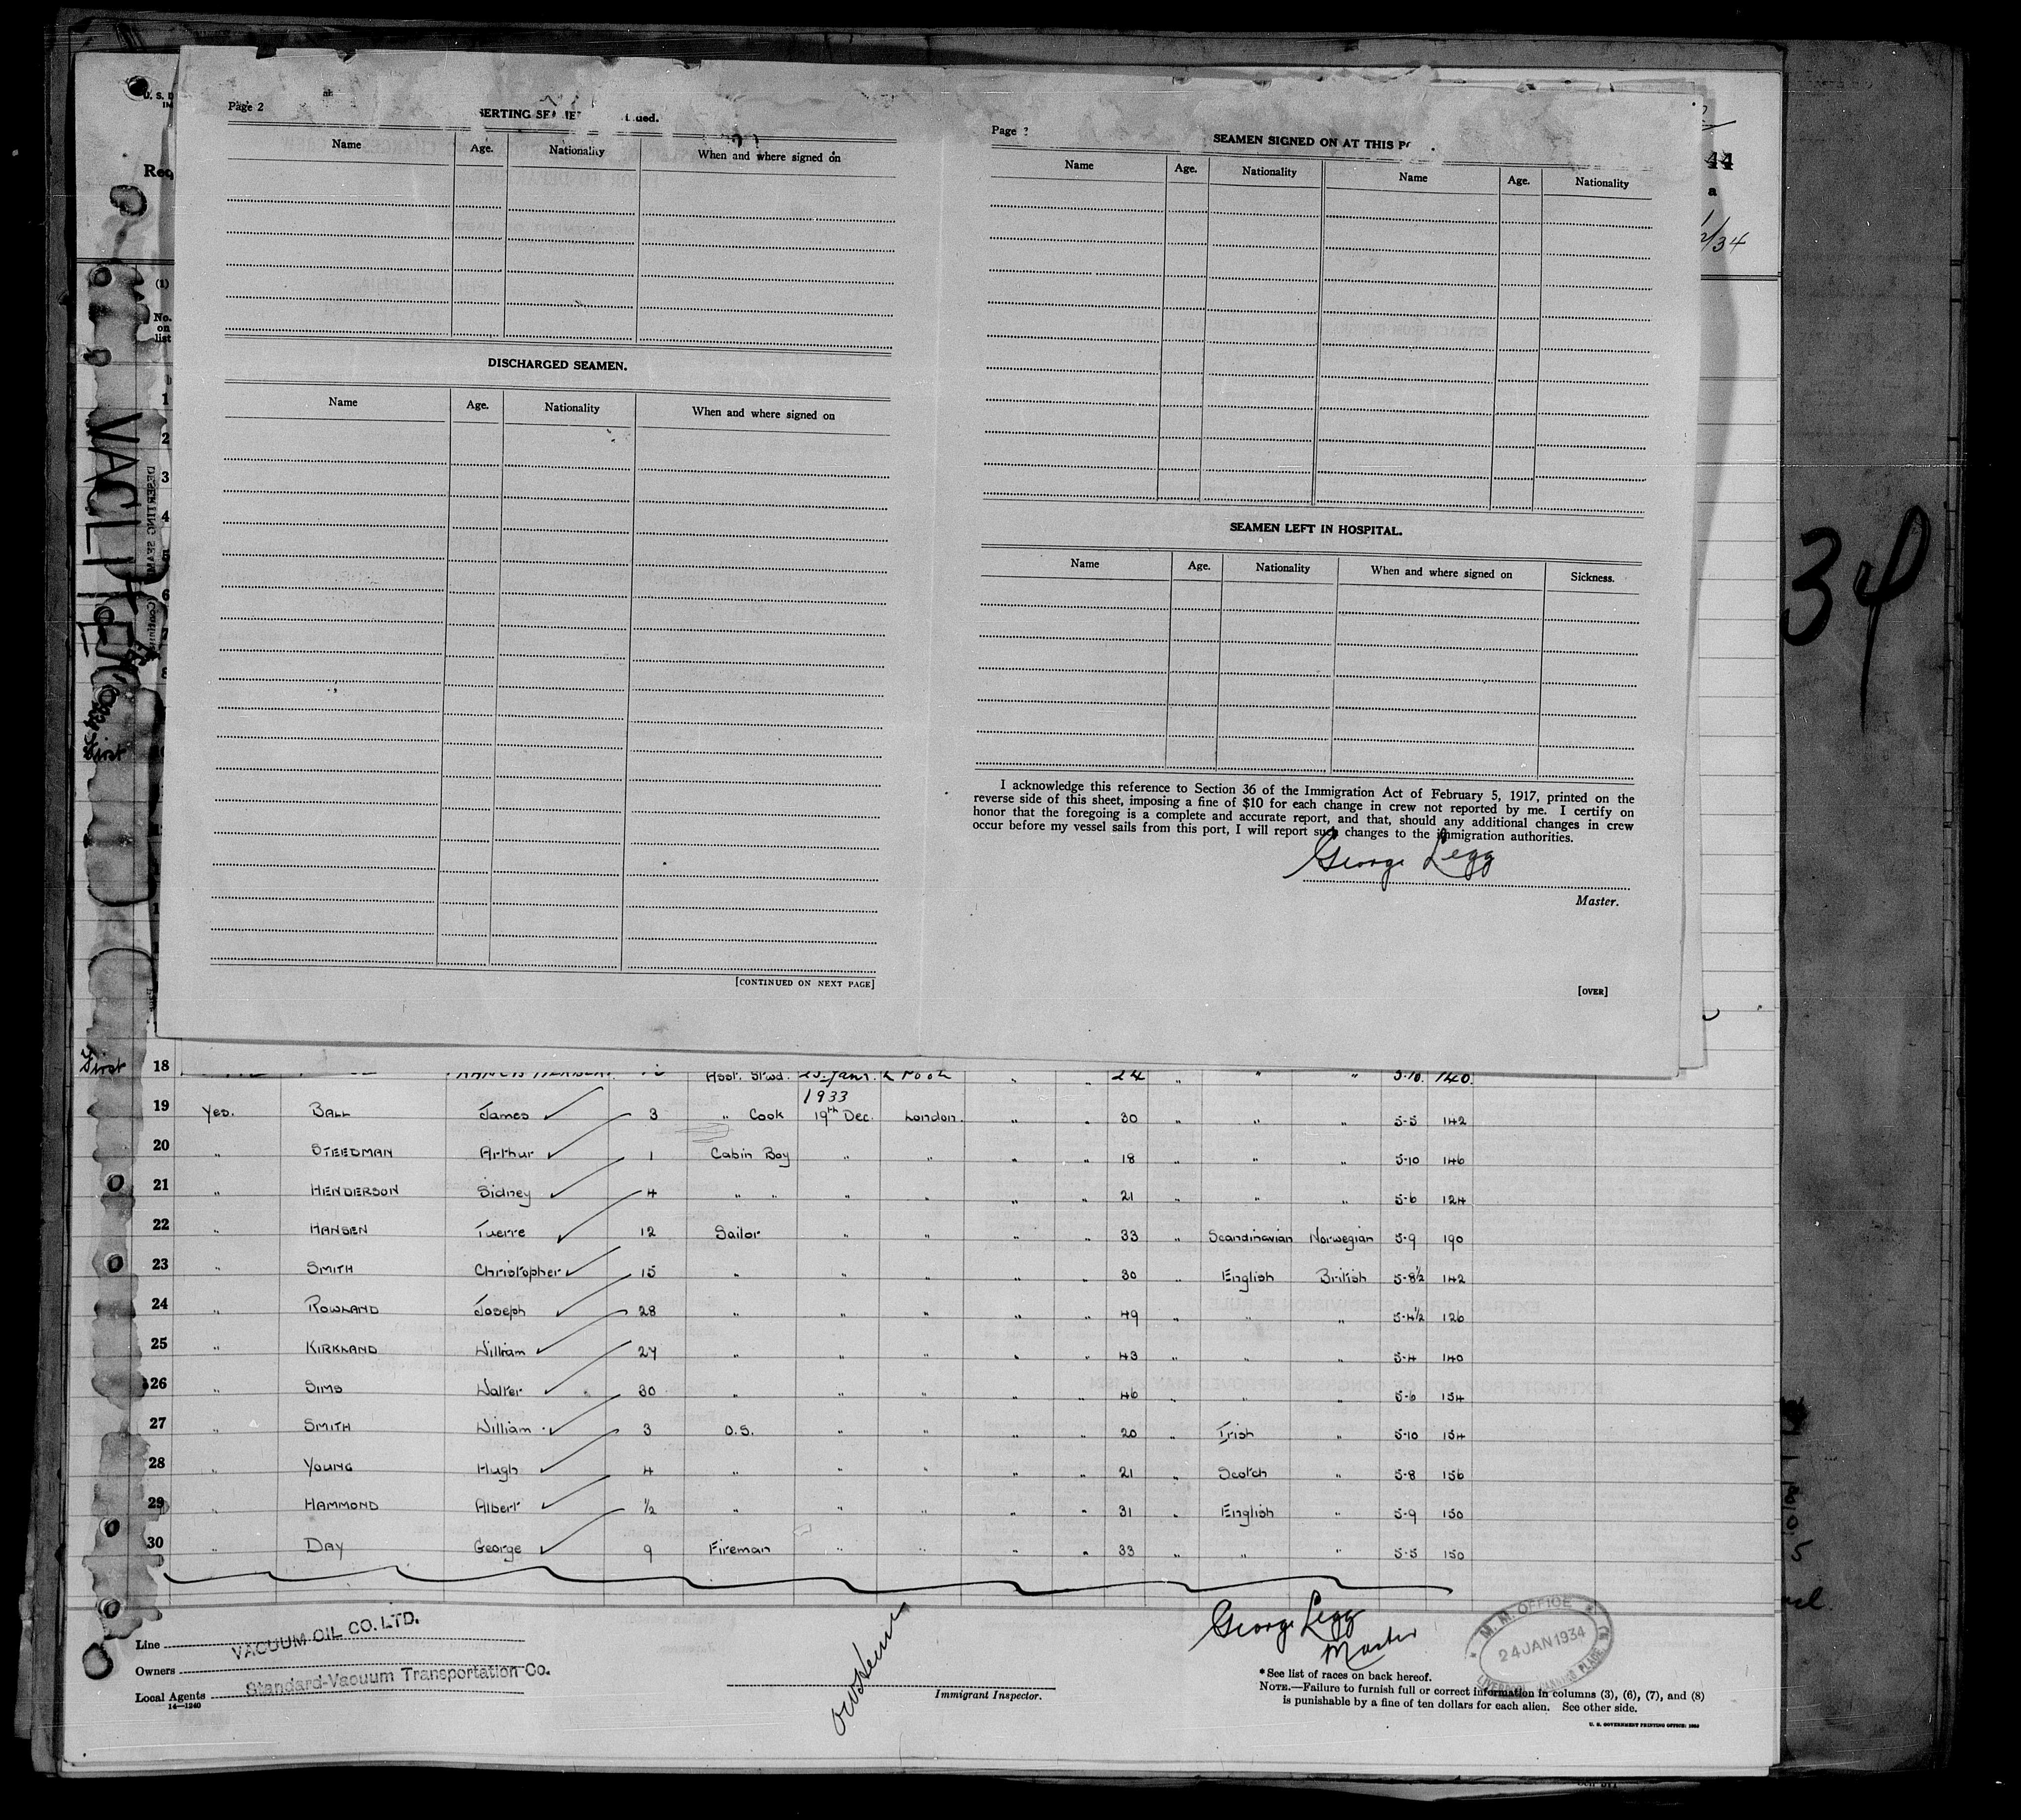 Page 2
Name Age. Nationality When and where signed on
DISCHARGED SEAMEN.
Name Age. Nationality When and where signed on
[CONTINUED ON NEXT PAGE]
Page
SEAMEN SIGNED ON AT THIS
Name Age. Nationality Name Age. Nationality
SEAMEN LEFT IN HOSPITAL.
Name Age. Nationality When and where signed on Sickness.
I acknowledge this reference to Section 36 of the Immigration Act of February 5, 1917, printed on the
reverse side of this sheet, imposing a fine of $10 for each change in crew not reported by me. I certify on
honor that the foregoing is a complete and accurate report, and that, should any additional changes in crew
occur before my vessel sails from this port, I will report such changes to the immigration authorities.
George Legg
Master.
[OVER]
44
a
34
(1)
No.
on
list
1
2
3
4
5
6
First
First 18 Asst. Stwd. 24 " " " 5-10. 140.
1933
19 Yes. BALL James 3 " Cook 19th Dec. London. " " 30 " " 5-5 142
20 " STEEDMAN Arthur 1 Cabin Boy " " " " 18 " " " 5-10 146
21 " HENDERSON Sidney 4 " " " " " " 21 " " " 5-6 124
22 " HANSEN Tuerre 12 Sailor " " " " 33 " Scandinavian Norwegian 5-9 190
23 " SMITH Christopher 15 " " " " 30 " English British 5-8½ 142
24 " ROWLAND Joseph 28 " " " " " 49 " " " 5-4½ 126
25 " KIRKLAND William 27 " " " " " 43 " " " 5-4 140
26 " SIMS Walter 30 " " " " " 46 " " " 5-6 154
27 " SMITH William 3 O.S. " " " " 20 " Irish " 5-10 154
28 " YOUNG Hugh 4 " " " " " 21 " Scotch " 5-8 156
29 " HAMMOND Albert ½ " " " " " 31 " English " 5-9 150
30 " DAY George 9 Fireman " " " " 33 " " " 5-5 150
Line VACUUM OIL CO. LTD.
Owners
Local Agents Standard-Vacuum Transportation Co.
14—1240
Immigrant Inspector.
George Legg
Master
M. M. OFFICE
24 JAN 1934
*See list of races on back hereof.
NOTE.—Failure to furnish full or correct information in columns (3), (6), (7), and (8)
is punishable by a fine of ten dollars for each alien. See other side.
U. S. GOVERNMENT PRINTING OFFICE:
34